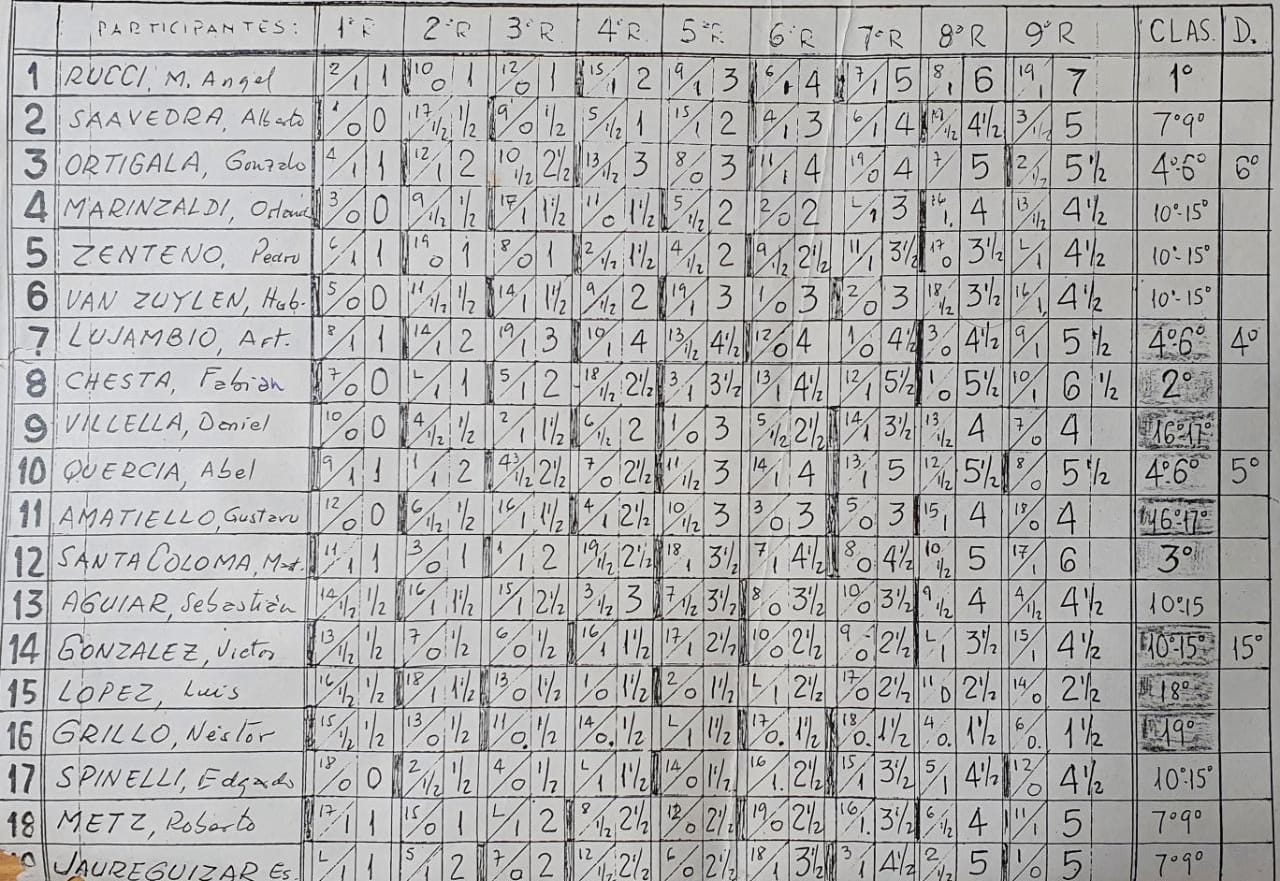 PARTICIPANTES: 1°R 2°R 3°R 4°R 5°R 6°R 7°R 8°R 9°R CLAS. D.
1 RUCCI, M. Angel 2/1 1 10/0 1 12/0 1 15/1 2 9/1 3 6/1 4 7/1 5 8/1 6 19/1 7 1°
2 SAAVEDRA, Alberto 1/0 0 17/½ ½ 9/0 ½ 5/½ 1 15/1 2 4/1 3 6/1 4 19/½ 4½ 3/½ 5 7°9°
3 ORTIGALA, Gonzalo 4/1 1 12/1 2 10/½ 2½ 13/½ 3 8/0 3 11/1 4 19/0 4 7/1 5 2/½ 5½ 4°-6° 6°
4 MARINZALDI, Orlando 3/0 0 9/½ ½ 17/1 1½ 11/0 1½ 5/½ 2 2/0 2 L/1 3 16/1. 4 13/½ 4½ 10°-15°
5 ZENTENO, Pedro 6/1 1 19/0 1 8/0 1 2/½ 1½ 4/½ 2 9/½ 2½ 11/1 3½ 17/0 3½ L/1 4½ 10°-15°
6 VAN ZUYLEN, Hab. 5/0 0 11/½ ½ 14/1 1½ 9/½ 2 19/1 3 1/0 3 2/0 3 18/½ 3½ 16/1 4½ 10°-15°
7 LUJAMBIO, Art. 8/1 1 14/1 2 19/1 3 10/1 4 13/½ 4½ 12/0 4 1/0 4½ 3/0 4½ 9/1 5½ 4°6° 4°
8 CHESTA, Fabian 7/0 0 L/1 1 5/1 2 18/½ 2½ 3/1 3½ 13/1 4½ 12/1 5½ 1/0 5½ 10/1 6½ 2°
9 VILLELLA, Daniel 10/0 0 4/½ ½ 2/1 1½ 6/½ 2 1/0 3 5/½ 2½ 14/1 3½ 13/½ 4 7/0 4 16°-17°
10 QUERCIA, Abel 9/1 1 1/1 2 3/½ 2½ 7/0 2½ 11/½ 3 14/1 4 13/1 5 12/½ 5½ 8/0 5½ 4°-6° 5°
11 AMATIELLO, Gustavo 12/0 0 6/½ ½ 16/1 1½ 4/1 2½ 10/½ 3 3/0 3 5/0 3 15/1 4 18/0 4 16°-17°
12 SANTA COLOMA, Mat. 11/1 1 3/0 1 1/1 2 19/½ 2½ 18/1 3½ 7/1 4½ 8/0 4½ 10/½ 5 17/1 6 3°
13 AGUIAR, Sebastián 14/½ ½ 16/1 1½ 15/1 2½ 3/½ 3 7/½ 3½ 8/0 3½ 10/0 3½ 9/½ 4 4/½ 4½ 10°15
14 GONZALEZ, Victor 13/½ ½ 7/0 ½ 6/0 ½ 16/1 1½ 17/1 2½ 10/0 2½ 9/0 2½ L/1 3½ 15/1 4½ 10°-15° 15°
15 LOPEZ, Luis 16/½ ½ 18/1 1½ 13/0 1½ 1/0 1½ 2/0 1½ L/1 2½ 17/0 2½ 11/0 2½ 14/0 2½ 18°
16 GRILLO, Néstor 15/½ ½ 13/0 ½ 11/0. ½ 14/0. ½ L/1 1½ 17/0. 1½ 18/0. 1½ 4/0. 1½ 6/0. 1½ 19°
17 SPINELLI, Edgardo 18/0 0 2/½ ½ 4/0 ½ L/1 1½ 14/0 1½ 16/1. 2½ 15/1 3½ 5/1 4½ 12/0 4½ 10°15°
18 METZ, Roberto 17/1 1 15/0 1 L/1 2 8/½ 2½ 12/0 2½ 19/0 2½ 16/1. 3½ 6/½ 4 11/1 5 7°9°
JAUREGUIZAR Es. L/1 1 5/1 2 7/0 2 12/½ 2½ 6/0 2½ 18/1 3½ 3/1 4½ 2/½ 5 1/0 5 7°9°